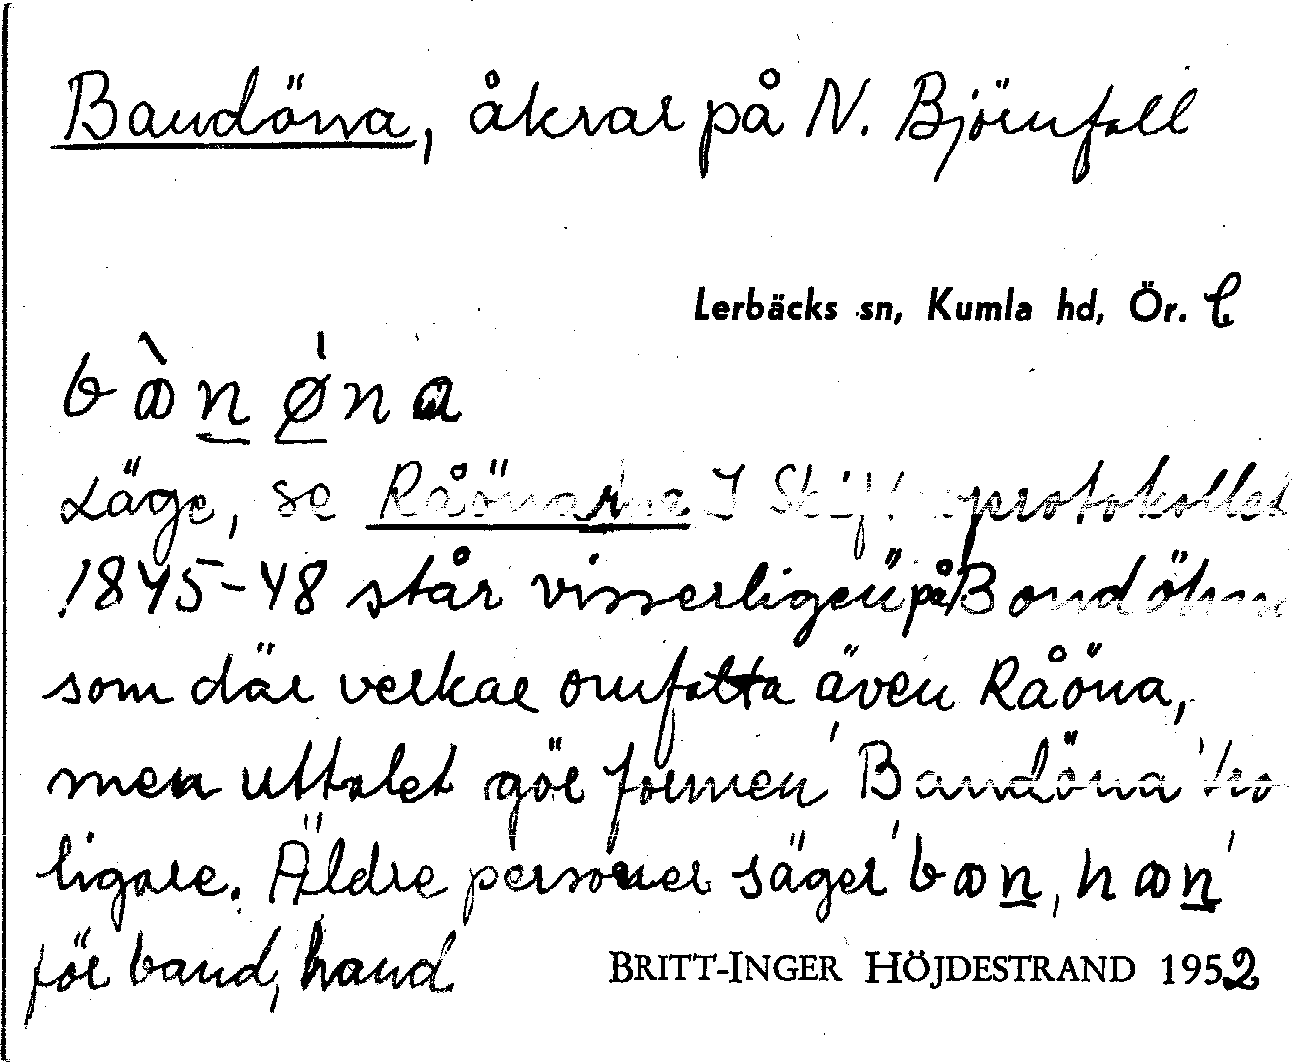 Bandöna, åkrar på N. Björnfall
Lerbäcks sn, Kumla hd, Ör. l.
bànøna
Läge, se Råönarna I Skiftesprotokollet
1845-48 står visserligen på Bondöhna
som där verkar omfatta även Råöna,
men uttalet gör formen 'Bandöna' tro
ligare. Äldre personer säger 'ban, han'
för band, hand
BRITT-INGER HÖJDESTRAND 1952